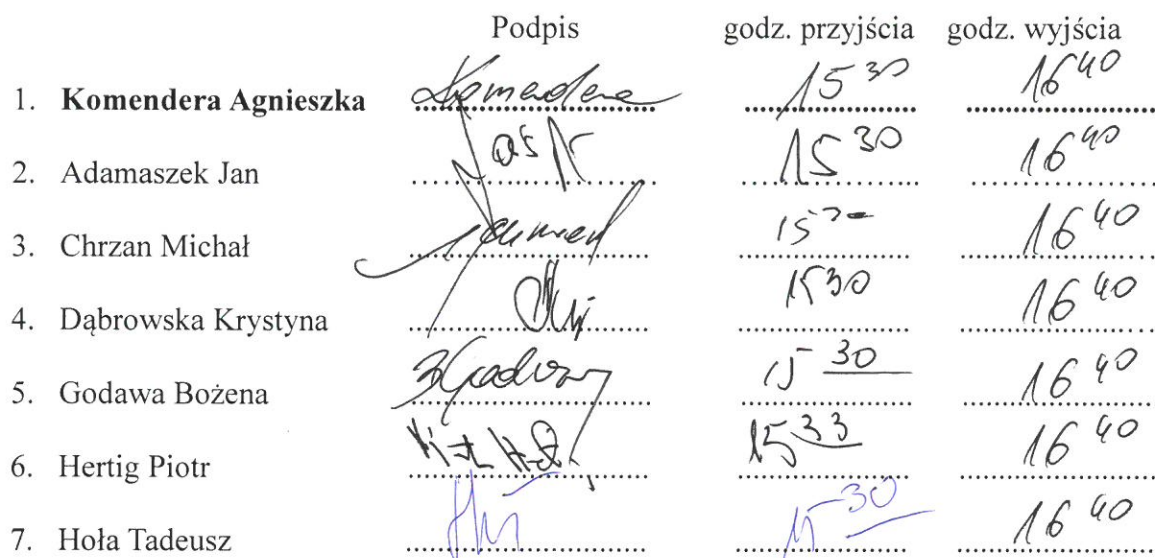 Podpis godz. przyjścia godz. wyjścia
1. Komendera Agnieszka Komendera 15 30 16 40
2. Adamaszek Jan 15 30 16 40
3. Chrzan Michał 15 16 40
4. Dąbrowska Krystyna 15 30 16 40
5. Godawa Bożena BGodawa 15 30 16 40
6. Hertig Piotr 15 33 16 40
7. Hoła Tadeusz 15 30 16 40